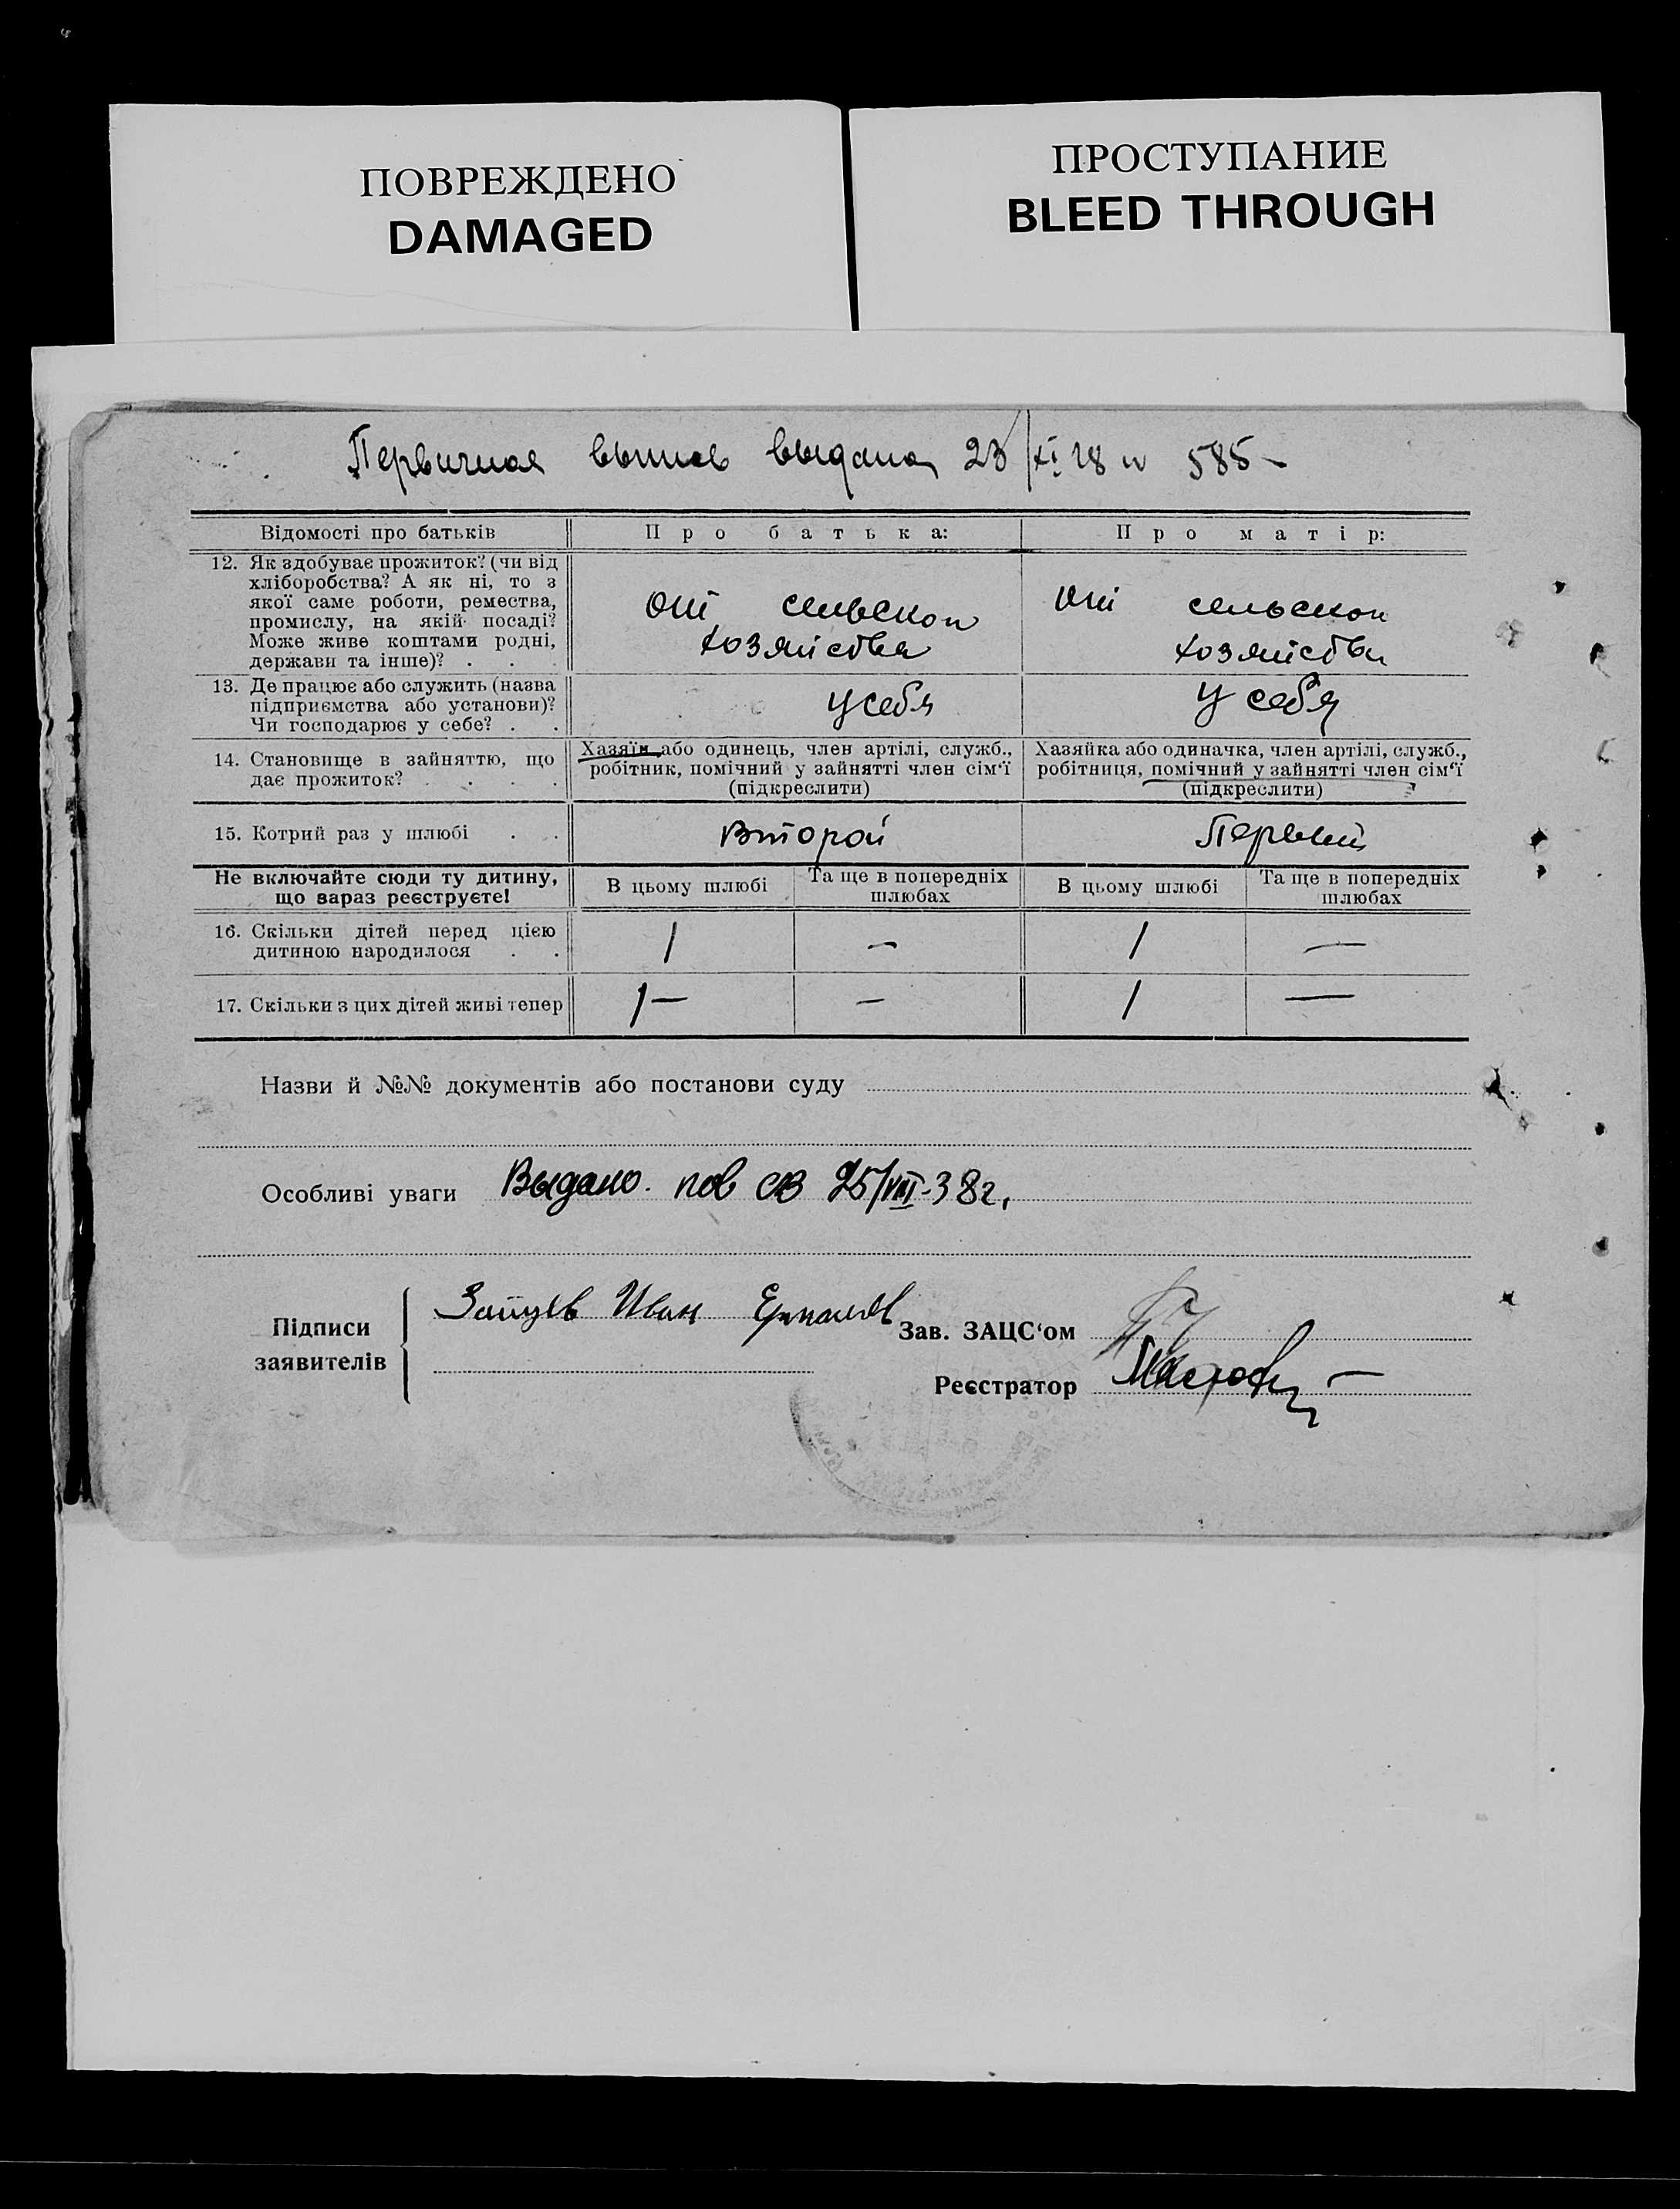 ПОВРЕЖДЕНО
DAMAGED
ПРОСТУПАНИЕ
BLEED THROUGH
Первичная выпись выдана 23/XI 28 585 –
Відомості про батьків
Про батька:
Про матір:
12. Як здобуває прожиток? (чи від
хліборобства? А як ні, то з
якої саме роботи, ремества,
промислу, на якій посаді?
Може живе коштами родні,
держави та інше)? . . .
От сельског
хозяйства
От сельског
хозяйства
13. Де працює або служить (назва
підприємства або установи)?
Чи господарює у себе? . .
у себя
у себя
14. Становище в зайняттю, що
дає прожиток? . . . .
Хазяїн або одинець, член артілі, служб.,
робітник, помічний у зайнятті член сім'ї
(підкреслити)
Хазяйка або одиначка, член артілі, служб.,
робітниця, помічний у зайнятті член сім'ї
(підкреслити)
15. Котрий раз у шлюбі . .
Второй
Первый
Не включайте сюди ту дитину,
що зараз реєструєте!
В цьому шлюбі
Та ще в попередніх
шлюбах
В цьому шлюбі
Та ще в попередніх
шлюбах
16. Скільки дітей перед цією
дитиною народилося . .
1
–
1
–
17. Скільки з цих дітей живі тепер
1 –
–
1
–
Назви й №№ документів або постанови суду
Особливі уваги Выдано. пов св 25/VIII-38г.
Підписи
заявителів
Зайцев Иван
Зав. ЗАЦС'ом
Реєстратор